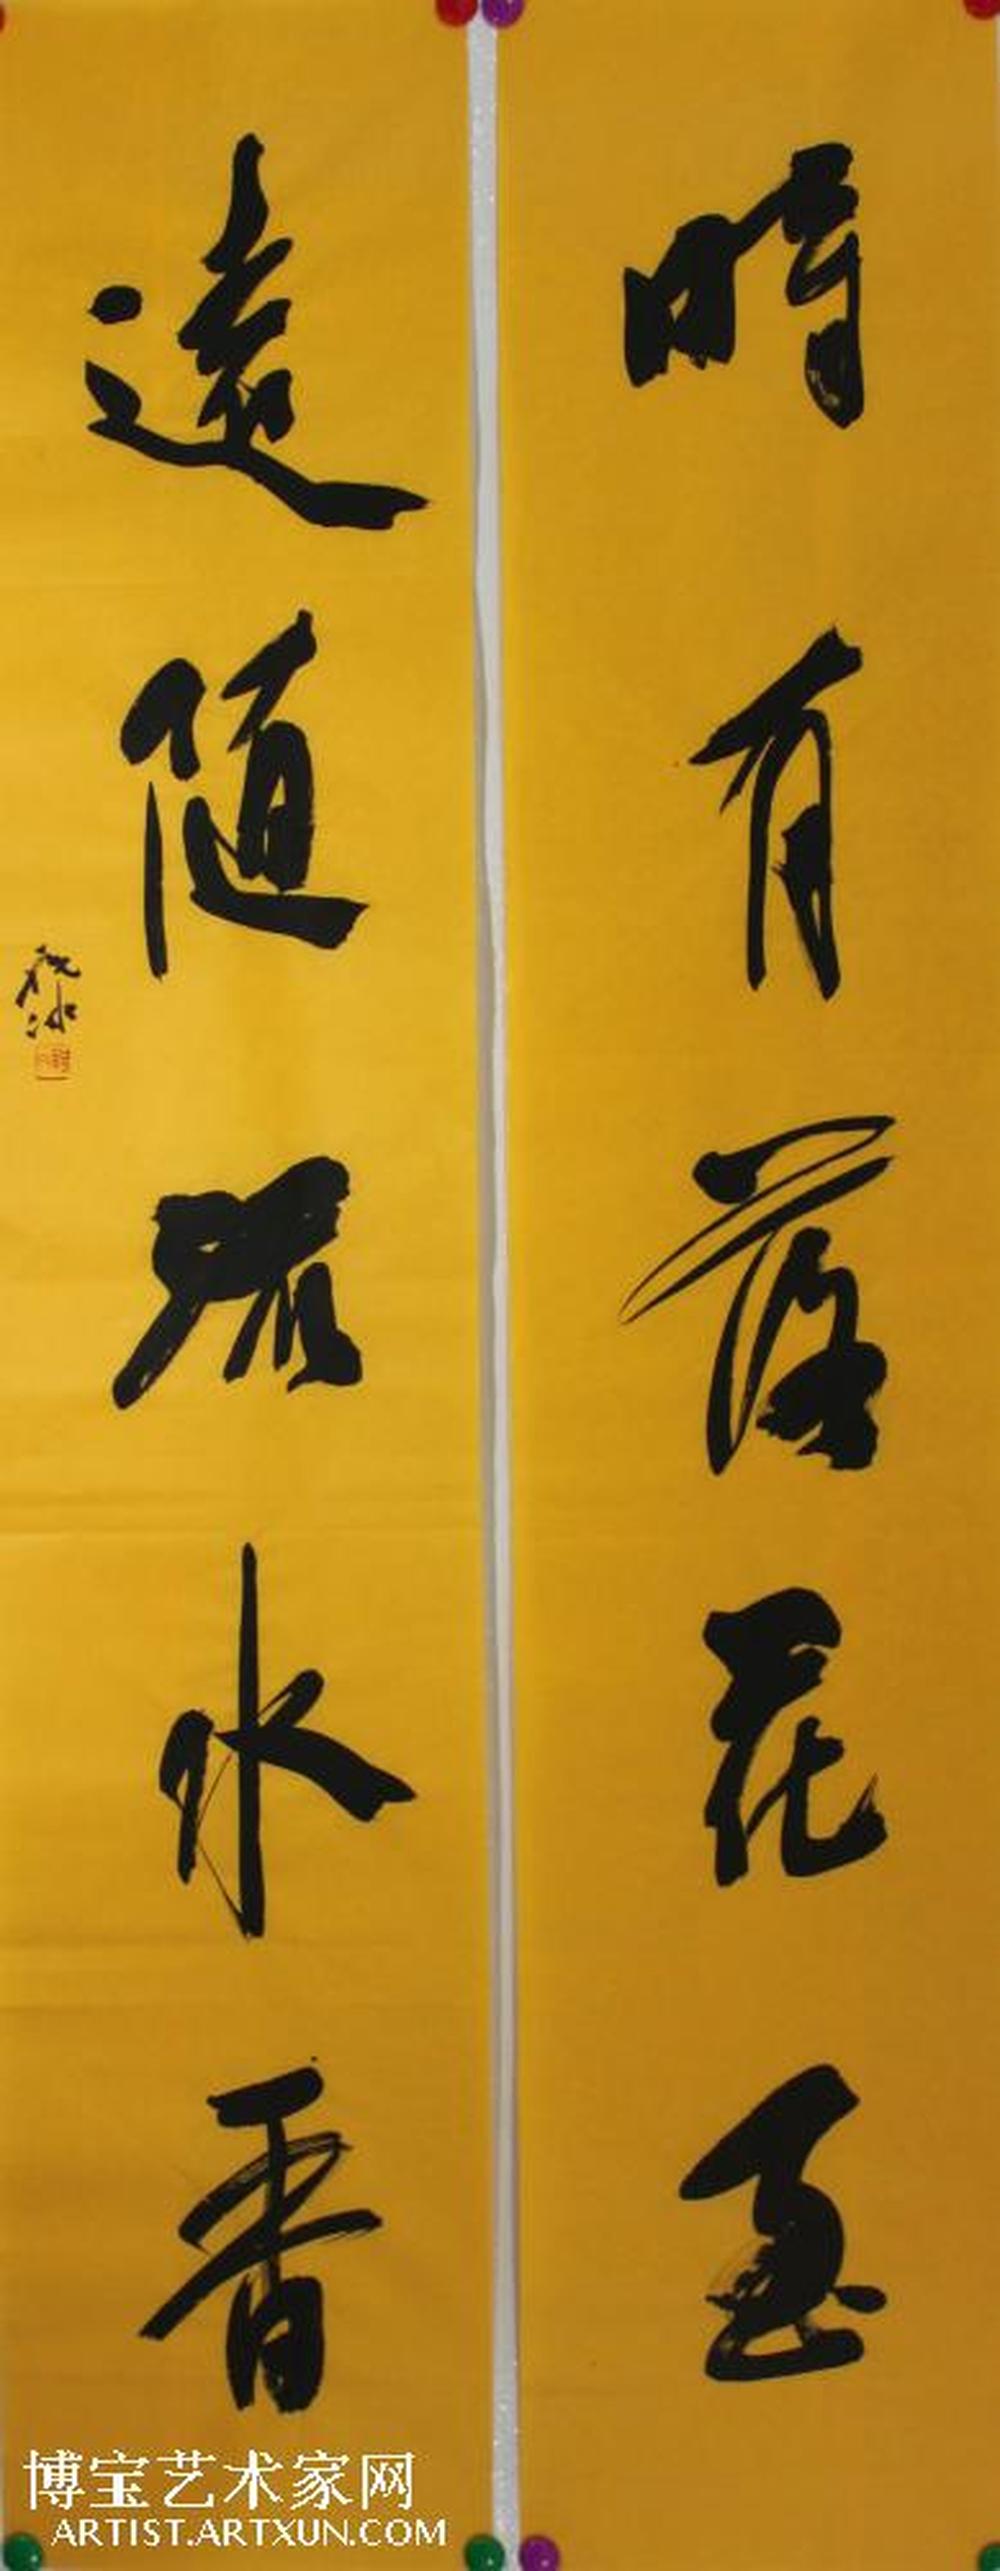 時有落花至
遠随流水香
博宝艺术家网
ARTIST.ARTXUN.COM